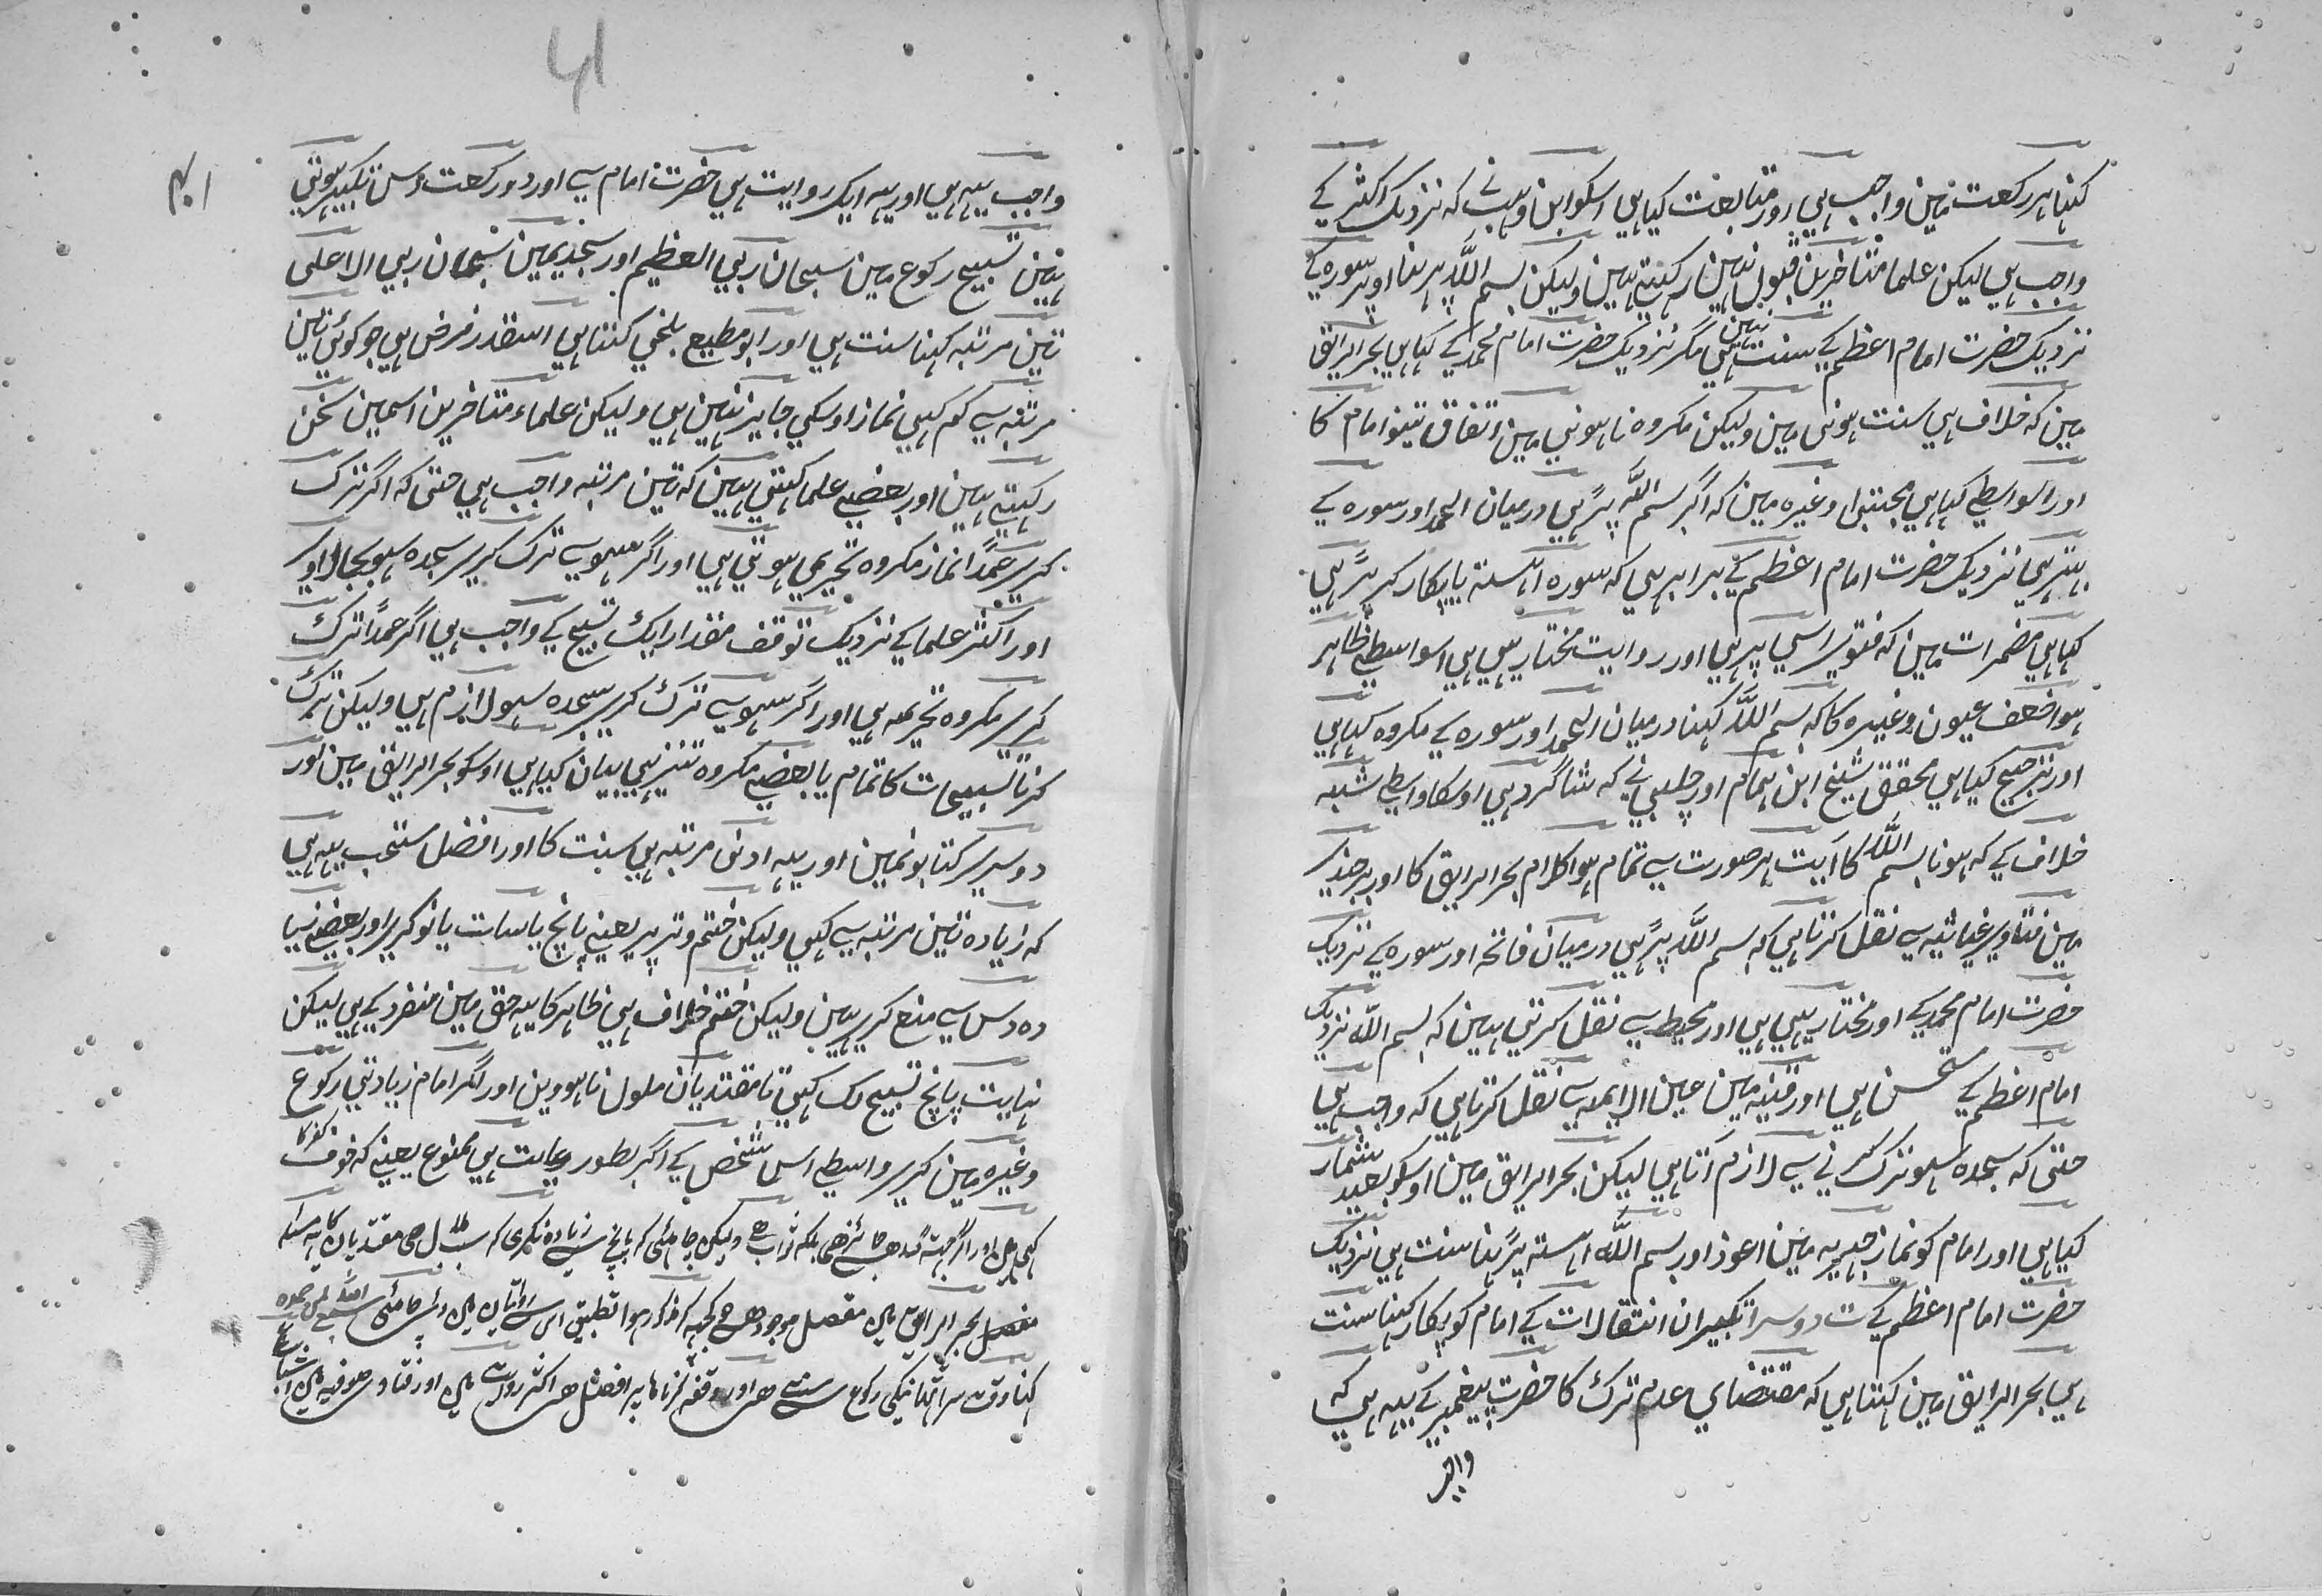 کہنا ہر رکعت مین واجب ہی اور متابعت کیا ہی اسکو ابن وہب نے کہ نزدیک اکثر کے
واجب ہی لیکن علما متاخرین قبول نہین رکہتے ہین ولیکن بسم اللہ پڑہنا اوپر سورہ کے
نزدیک حضرت امام اعظم کے سنت نہین ہی مگر نزدیک حضرت امام محمد کے کہا ہی بحر الرایق
مین کہ خلاف ہی سنت ہونی مین ولیکن مکروہ نا ہونی مین اتفاق تینو امام کا
اور اسواسطے کہا ہی مجتبی وغیرہ مین کہ اگر بسم اللہ پڑہی درمیان الحمد اور سورہ کے
بہتر ہی نزدیک حضرت امام اعظم کے برابر ہی کہ سورہ اہستہ یا پکار کر پڑہی
کہا ہی مضمرات مین کہ فتوی اسی پر ہی اور روایت مختار یہی ہی اسواسطے ظاہر
ہوا ضعف عیون وغیرہ کا کہ بسم اللہ کہنا درمیان الحمد اور سورہ کے مکروہ کہا ہی
اور ترجیح کیا ہی محقق شیخ ابن ہمام اور چلپی نے کہ شاگرد ہی اوسکا واسطے شبہ
خلاف کے کہ ہونا بسم اللہ کا آیت ہر صورت سے تمام ہوا کلام بحر الرایق کا اور برجندی
مین فتاوی غیاثیہ سے نقل کرتا ہی کہ بسم اللہ پڑہی درمیان فاتحہ اور سورہ کے نزدیک
حضرت امام محمد کے اور مختار یہی ہی اور محیط سے نقل کرتی ہین کہ بسم اللہ نزدیک
امام اعظم کے مستحسن ہی اور قنیہ مین عین الایمہ سے نقل کرتا ہی کہ واجب ہی
حتی کہ سجدہ سہو ترک کرنی سے لازم آتا ہی لیکن بحر الرایق مین اوسکو بعید شمار
کیا ہی اور امام کو نماز جہریہ مین اعوذ اور بسم اللہ اہستہ پڑہنا سنت ہی نزدیک
حضرت امام اعظم کے ت دوسرا تکبیران انتقالات کے امام کو پکار کہنا سنت
ہی بحر الرایق مین کہتا ہی کہ مقتضای عدم ترک کا حضرت پیغمبر کے یہہ ہی کہ
واجب
41
۴۱
واجب یہہ ہی اور یہہ ایک روایت ہی حضرت امام سے اور دو رکعت دس تکبیر ہوتی
ہین تسبیح رکوع مین سبحان ربی العظیم اور سجدیمین سبحان ربی الاعلی
تین مرتبہ کہنا سنت ہی اور ابو مطیع بلخی کہتا ہی اسقدر فرض ہی جو کوئی تین
مرتبہ سے کم کہی نماز اوسکی جایز نہین ہی ولیکن علماء متاخرین اسمین سخن
رکہتے ہین اور بعضے علما کہتے ہین کہ تین مرتبہ واجب ہی حتی کہ اگر ترک
کرے عمداً نماز مکروہ تحریمی ہوتی ہی اور اگر سہو سے ترک کرے سجدہ سہو بجالاوی
اور اکثر علما کے نزدیک توقف مقدار ایک تسبیح کے واجب ہی اگر عمداً ترک
کرے مکروہ تحریمہ ہی اور اگر سہو سے ترک کرے سجدہ سہو لازم ہی ولیکن ترک
کرنا تسبیحات کا تمام یا بعضے مکروہ تنزیہی بیان کیا ہی اوسکو بحر الرایق مین اور
دوسرے کتابونمین اور یہہ ادنی مرتبہ ہی سنت کا اور افضل مستحب یہہ ہی
کہ زیادہ تین مرتبہ سے کہی ولیکن ختم وتر پر یعنے پانچ یا سات یا نو کرے اور بعضے
دہ دس سے منع کرے ہین ولیکن ختم خلاف ہی ظاہر کا یہ حق مین منفرد کے ہی لیکن
نہایت پانچ تسبیح تک کہی تا مقتدیان ملول نا ہووین اور اگر امام زیادتی رکوع
وغیرہ مین کرے واسطے اس شخص کے اگر بطور رعایت ہی ممنوع یعنے کہ خوف کفر کا
بحر الرایق مین مفصل موجود ہے